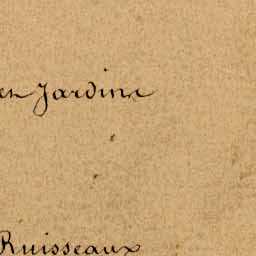 en Jardins
Ruisseaux